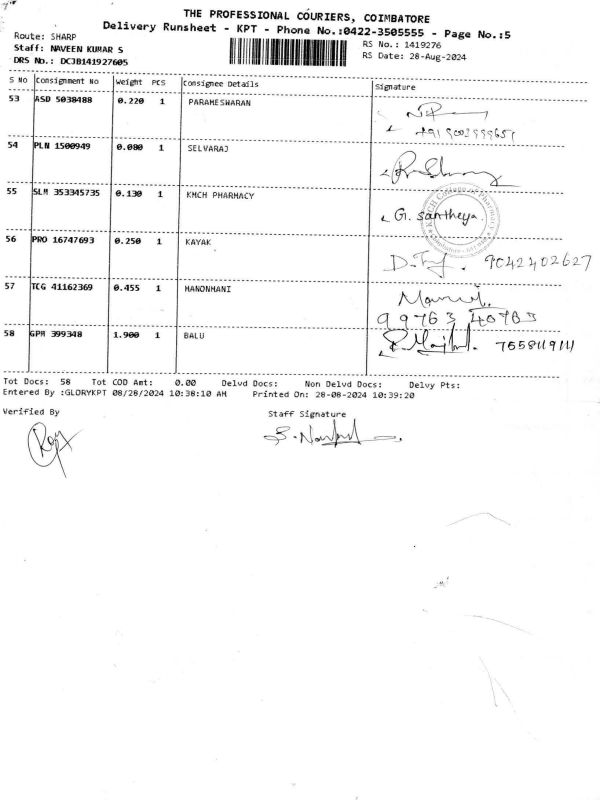 THE PROFESSIONAL COURIERS, COIMBATORE
Delivery Runsheet - KPT - Phone No.:0422-3505555 - Page No.:5
Route: SHARP
RS No.: 1419276
Staff: NAVEEN KUMAR S
RS Date: 28-Aug-2024
DRS No.: DCJB141927605
S NO Consignment No Weight PCS Consignee Details Signature
53 ASD 5038488 0.220 1 PARAMESWARAN
54 PLN 1500949 0.080 1 SELVARAJ
55 SLM 353345735 0.130 1 KMCH PHARMACY G. Santheya.
56 PRO 16747693 0.250 1 KAYAK 9042402627
57 TCG 41162369 0.455 1 MANONMANI
99763 40783
58 GPM 399348 1.900 1 BALU
Tot Docs: 58 Tot COD Amt: 0.00 Delvd Docs: Non Delvd Docs: Delvy Pts:
Entered By :GLORYKPT 08/28/2024 10:38:10 AM Printed On: 28-08-2024 10:39:20
Verified By Staff Signature